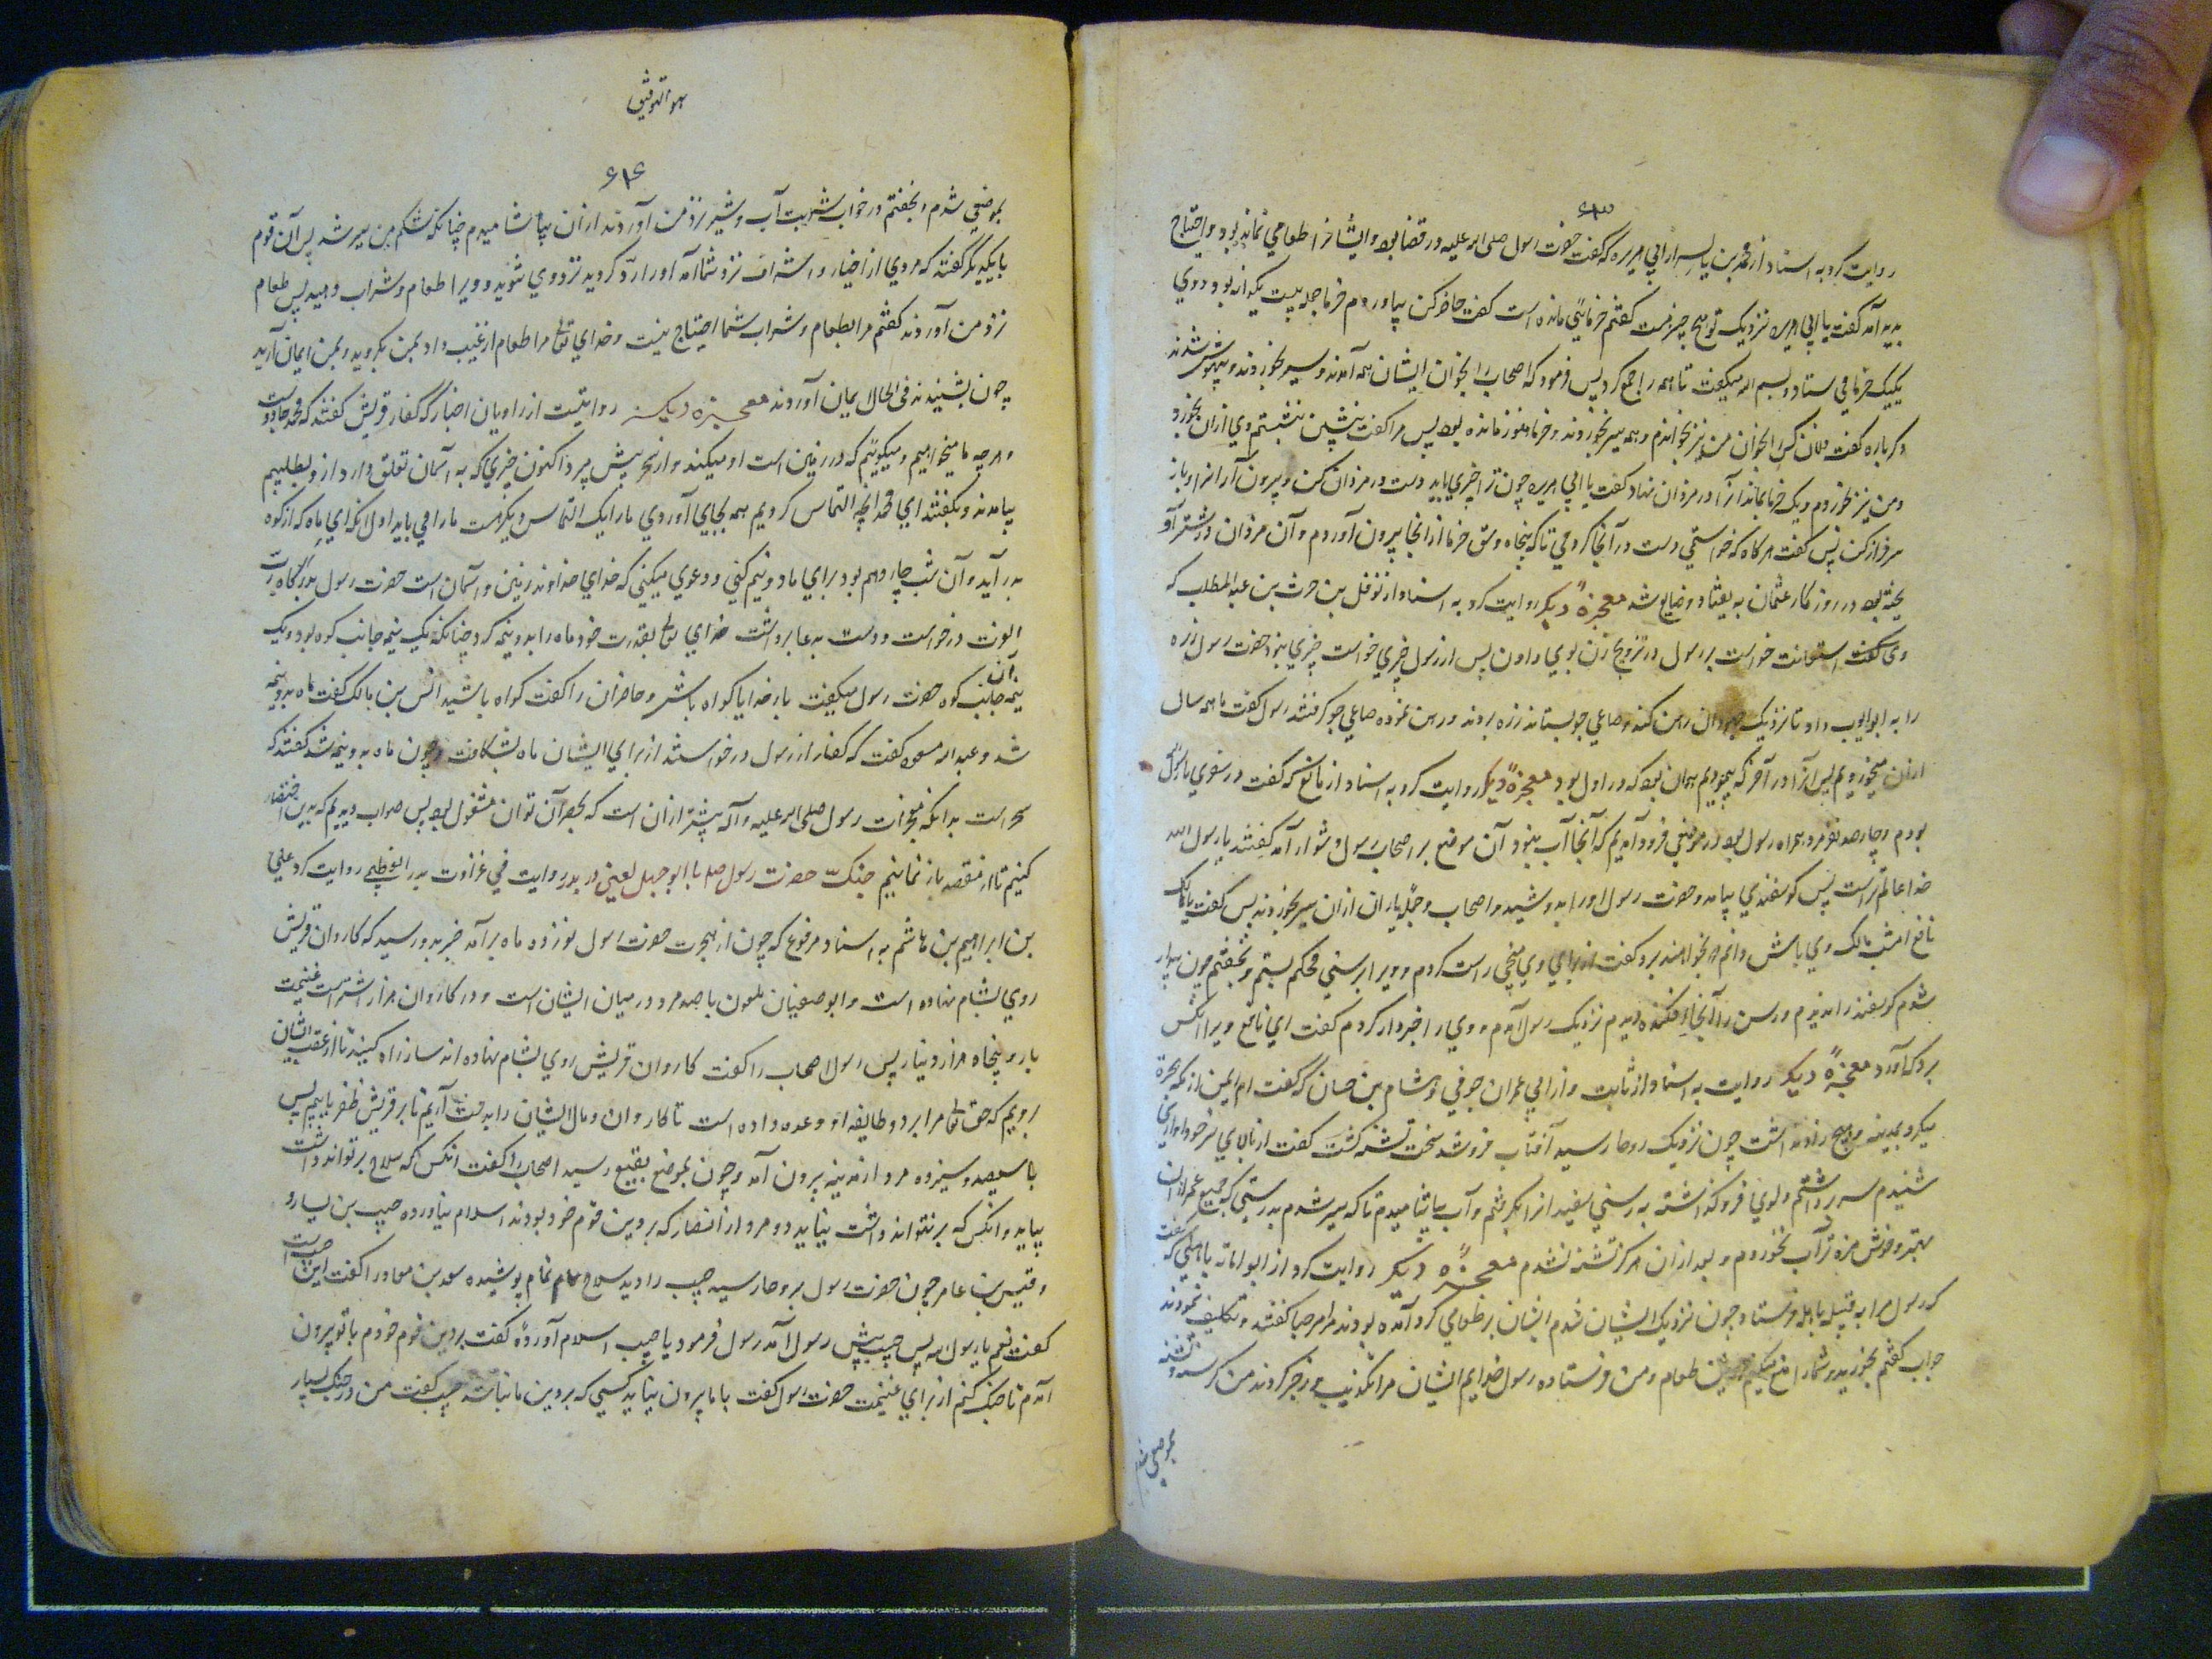 ۶۱۳
روایت کرد به اسناد از محمد بن یاسر از ابی هریره که گفت حضرت رسول صلی الله علیه در قضا بود و ایشانرا طعامی نمانده بود و احتیاج
پدید آمد گفت یا ابی هریره نزدیک تو هیچ چیز هست گفتم خرمائی مانده است گفت حاضر کن بیاوردم خرما جمله بیست یکدانه بود و وی
یکیک خرما می ستاد و بسم الله میگفت تا همه را جمع کرد پس فرمود که اصحاب را بخوان ایشان همه آمدند و سیر بخوردند و شدند
دکر باره گفت فلان کس را بخوان من نیز بخواندم و همه سیر بخوردند و خرما هنوز مانده بود پس مرا گفت بنشین بنشستم وی از ان بخورد
و من نیز بخوردم و یک خرما بماند آنرا در مزدان نهاد گفت یا ابی هریره چون ترا چیزی باید دست در مزدان کن و بیرون آر انرا و باز
سرفراز کن پس گفت هرکاه که خواستمی دست در آنجا کردمی تا که پنجاه وسق خرما از انجا بیرون آوردم و آن مزدان
در روزکار عثمان به یغما و ضایع شد معجزهٔ دیکر روایت کرد به اسناد از نوفل بن حرث بن عبد المطلب که
وی گفت استعانت خواست بر رسول در تزویج زن بوی دادن پس از رسول چیزی خواست چیزی نبود حضرت رسول زره
را به ابو ایوب داد تا نزدیک جهودان رهن کند و صاعی جو بستاند زره بردند و رهن نموده صاعی جو کرفتند رسول گفت ما همه سالی
ازان میخوردیم پس انرا در آخر که بپیمودیم همان بود که در اول بود معجزهٔ دیکر روایت کرد به اسناد از نافع که گفت در سفری با رسول الله
بودم و چهارصد نفر مرد همراه رسول بود در موضعی فرود آمدیم که آنجا آب نبود و آن موضع بر اصحاب رسول دشوار آمد گفتند یا رسول الله
خدا عالم تر است پس کوسفندی بیامد و حضرت رسول او را بدوشید و اصحاب و جمله یاران ازان سیر بخوردند پس گفت
نافع امشب مالک وی باش دانم که بخواهند برد گفت از برای وی میخی راست کردم و ویرا برسنی محکم ببستم و بخفتم چون بیدار
شدم کوسفند را ندیدم و رسن را آنجا افکنده دیدم نزدیک رسول آمدم و وی را خبردار کردم گفت ای نافع ویرا انکس
برد که آورد معجزهٔ دیکر روایت به اسناد از ثابت و از ابی عمران جونی و هشام بن حسان که گفت ام ایمن از مکه هجرة
میکرد بمدینه و هیچ زاد نداشت چون نزدیک روحا رسید آفتاب فرو شد سخت تشنه گشت گفت از بالای سر خود آوازی
شنیدم سر برداشتم دلوی فرو گذاشته به رسنی سفید انرا بکرفتم و آب بیاشامیدم تا که سیر شدم بدرستی که جمیع عمر ازان
بهتر و خوش مزه تر آب نخوردم و بعد ازان هرکز تشنه نشدم معجزهٔ دیکر روایت کرد از ابو امامه باهلی که گفت
که رسول مرا به قبیله باهله فرستاد چون نزدیک ایشان شدم ایشان بر طعامی کرد آمده بودند مرا مرحبا گفتند و تکلیف نمودند
جواب گفتم بخورید و شما را منع میکنم طعام و من فرستاده رسول خدایم ایشان مرا تکذیب و زجر کردند من کرسنه و تشنه
بموضعی شدم
هو التوفیق
۶۱۴
بموضعی شدم و بخفتم در خواب شربت آب و شیر نزد من آوردند از ان بیاشامیدم چنانکه شکم من سیر شد پس آن قوم
بایکدیگر گفتند که مردی از اخیار و اشراف نزد شما آمد او را ردّ کردید نزد وی شوید و ویرا طعام و شراب دهید پس طعام
نزد من آوردند گفتم مرا بطعام و شراب شما احتیاج نیست و خدای تعالی مرا طعام از غیب داد بمن بکروید و بمن ایمان آرید
چون بشنیدند فی الحال ایمان آوردند معجزه دیکر روایتست از راویان اخبار که کفار قریش گفتند که محمد جادوست
و هرچه ما میخواهیم و میکوئیم که در زمین است او میکند و از سحر پیش میبرد اکنون چیزی که به آسمان تعلق دارد از و بطلبیم
بیامدند و بگفتند ای محمد انچه التماس کردیم همه بجای آوردی ما را یک التماس دیکر هست ما را می باید اول انکه ای ماه که از کوه
بدر آید و آن شب چاردهم بود برای ما دو نیم کنی و دعوی میکنی که خدای خداوند زمین و آسمان است حضرت رسول بدرگاه رب
العزت درخواست و دست به دعا برداشت خدای تعالی بقدرت خود ماه را بدو نیمه کرد چنانکه یک نیمه جانب کوه بود و یک
نیمه جانب آن کوه حضرت رسول میگفت بار خدایا کواه باش و حاضران را گفت کواه باشید انس بن مالک گفت ماه بدو نیمه
شد و عبد الله مسعود گفت که کفار از رسول درخواستند از برای ایشان ماه بشکافت و چون ماه به دو نیمه شد گفتند که
سحر است بدانکه معجزات رسول صلی الله علیه و آله بیشتر از ان است که بحصر آن توان مشغول بود پس صواب دیدیم که بدین اختصار
کنیم تا از مقصد باز نمانیم جنک حضرت رسول صلعم با ابو جهل لعین در بدر روایت فی غزاوت بدر العظمی روایت کرد علی
بن ابراهیم بن هاشم به اسناد مرفوع که چون از هجرت حضرت رسول نوزده ماه برآمد خبر بدو رسید که کاروان قریش
روی بشام نهاده است و ابوصفیان ملعون با صد مرد در میان ایشان است و در کاروان هزار اشتر است غنیمت
بار و پنجاه هزار دینار پس رسول اصحاب را گفت کاروان قریش روی بشام نهاده اند ساز راه کنید تا از عقب ایشان
برویم که حق تعالی مرا بر دو طایفه او وعده داده است تا کاروان و مال ایشان را بدست آریم تا بر قریش ظفر یابیم پس
با سیصد و سیزده مرد از مدینه بیرون آمد و چون بموضع بقیع رسید اصحاب را گفت انکس که سلاح بر تواند داشت
بیاید و انکس که بر نتواند داشت نیاید دو مرد از انصار که بر دین قوم خود بودند اسلام نیاورده حبیب بن یسار و
و قیس بن عامر چون حضرت رسول بروحا رسید حبیب را دید سلاح تمام پوشیده سعد بن معاد را گفت این حبیب است
گفت نعم یا رسول الله پس حبیب پیش رسول آمد رسول فرمود یا حبیب اسلام آورده گفت بر دین قوم خودم با تو بیرون
آمدم تا جنک کنم از برای غنیمت حضرت رسول گفت با ما بیرون نیاید کسی که بر دین ما نباشد حبیب گفت من در جنک بسیار